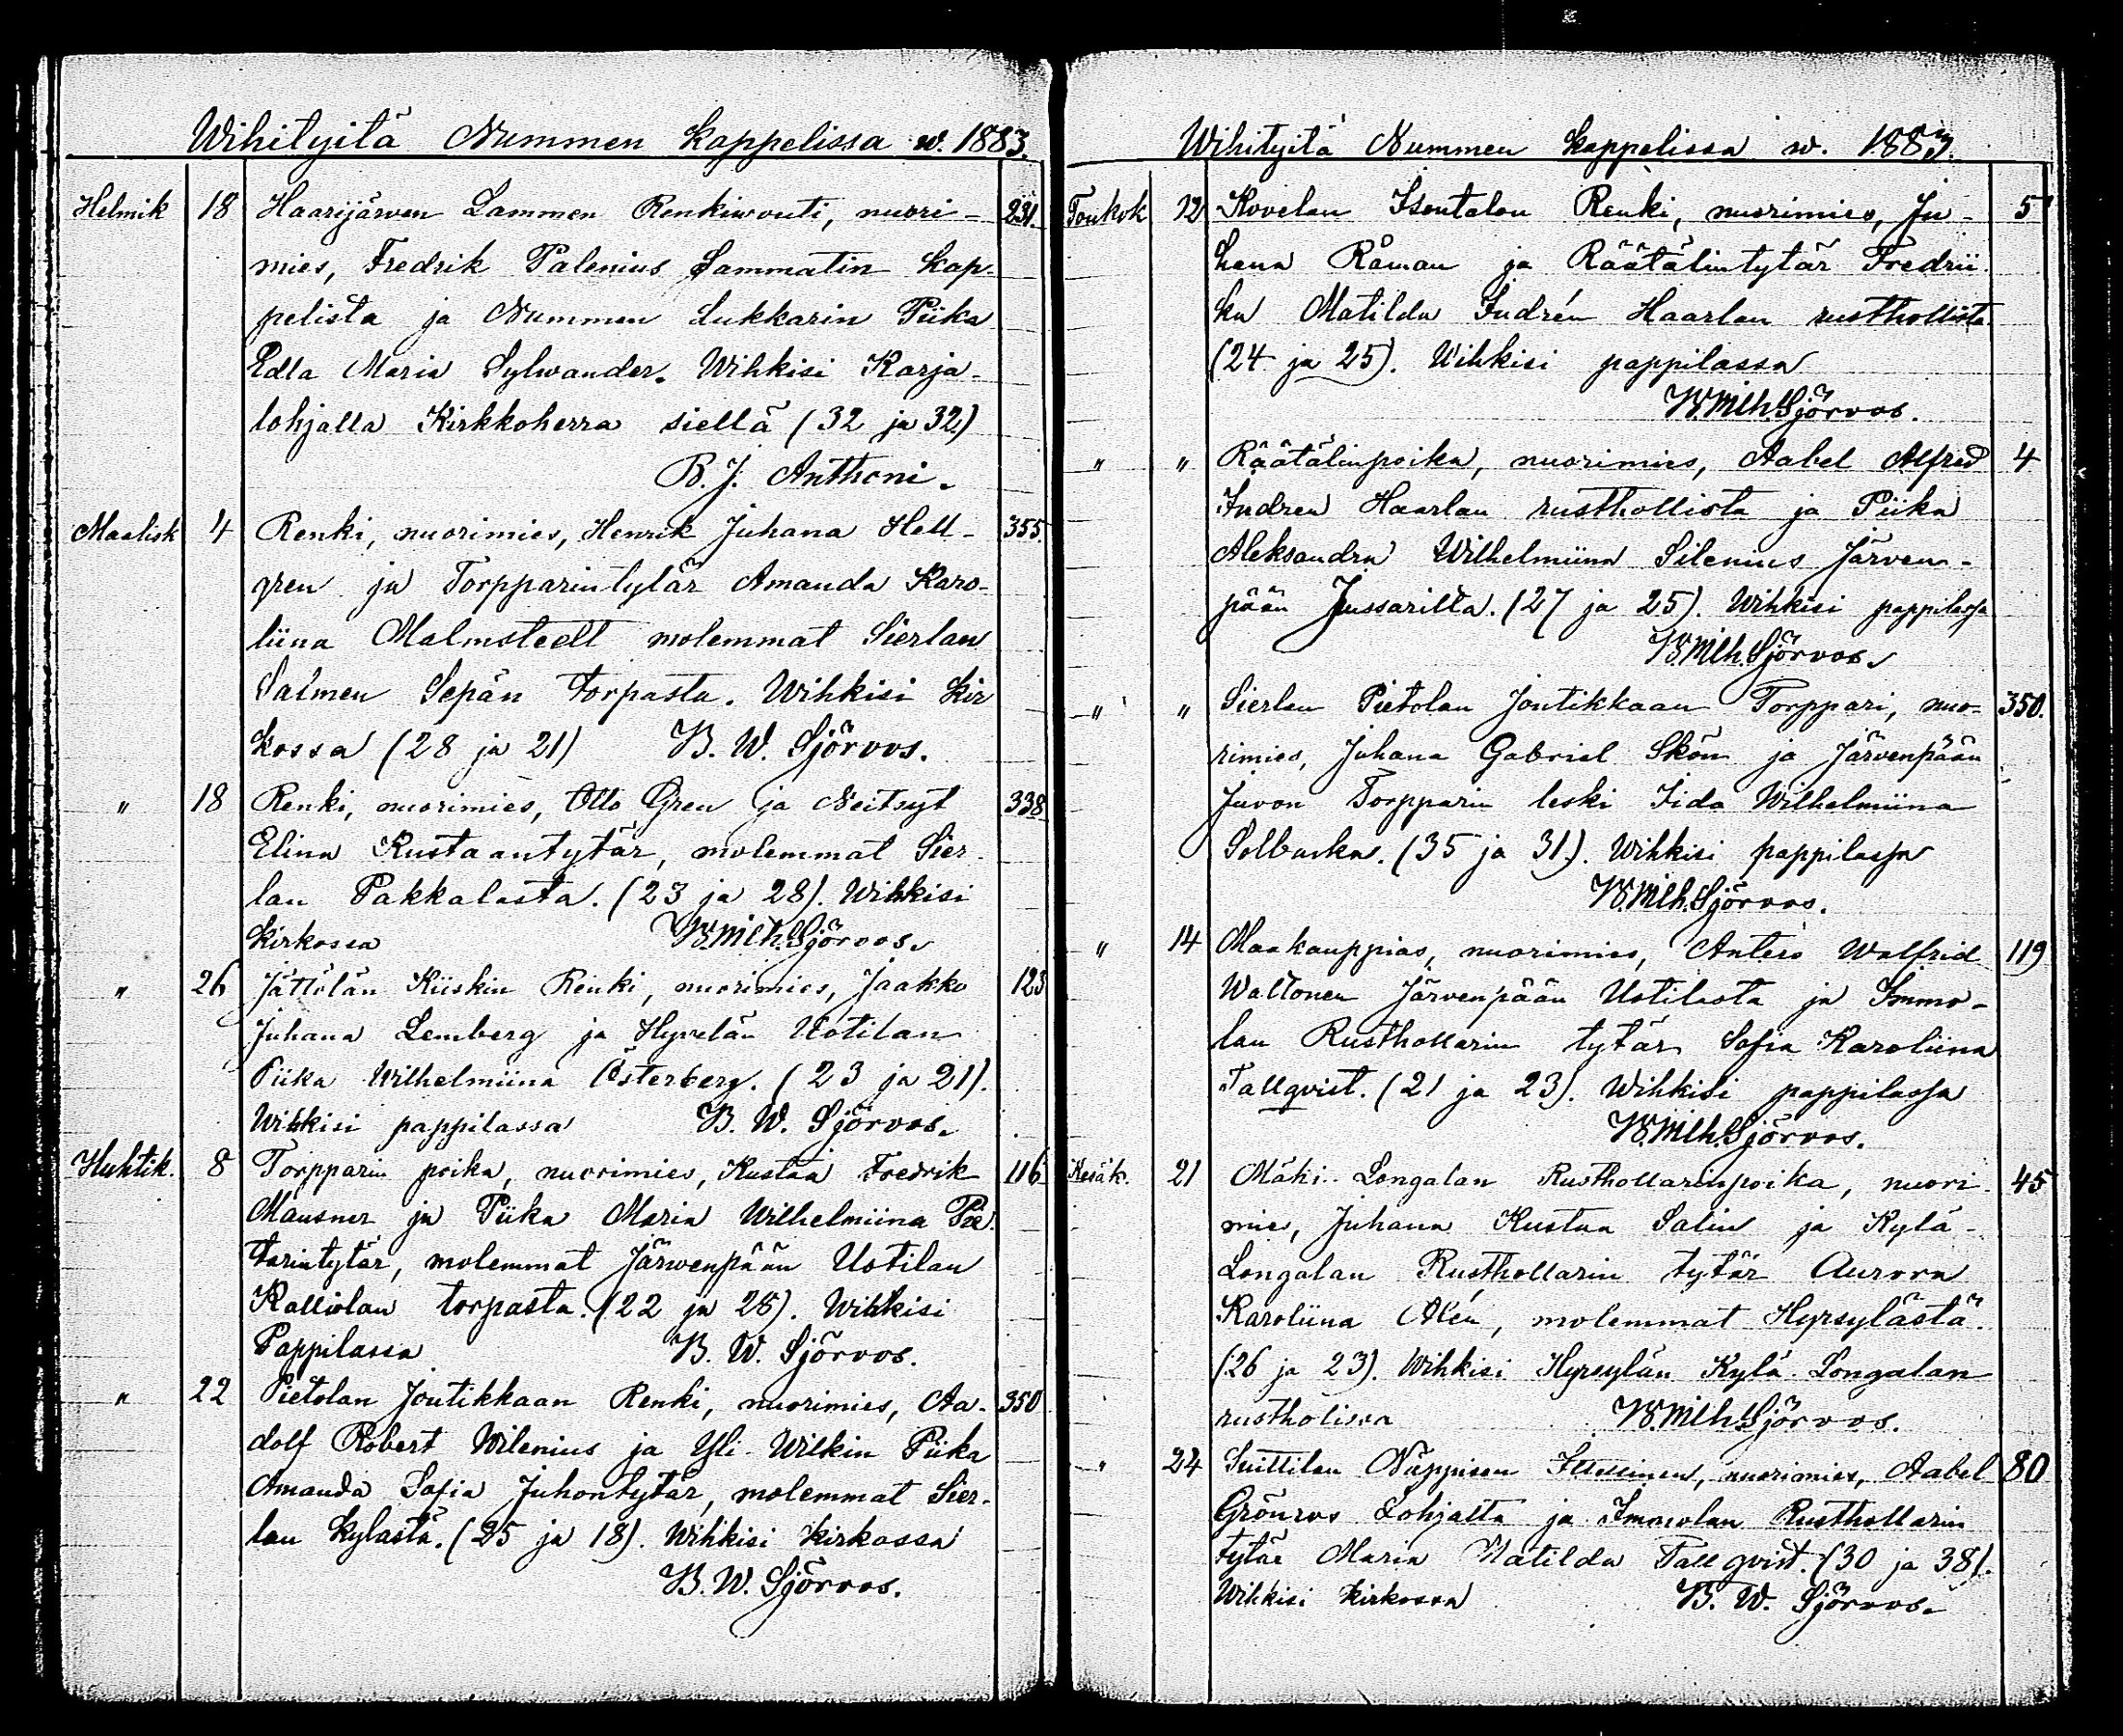 Wihityitä Nummen kappelissa w. 1883.
Helmik 18 Haarijärven Lammen Renkiwouti, nuori- 231.
mies, Fredrik Palenius Sammatin kap-
pelista ja Nummen Lukkarin Piika
Edla Maria Sylwander. Wihkisi Karja-
lohjalla Kirkkoherra siellä (32 ja 32)
B. J. Anthoni.
Maalisk 4 Renki, nuorimies, Henrik Juhana Hell- 355.
gren ja Torpparintytär Amanda Karo-
liina Malmstedt molemmat Sierlan
Salmen Sepän torpasta. Wihkisi kir
kossa (28 ja 21) B. W. Sjöroos.
" 18 Renki, nuorimies, Otto Gren ja Neitsyt 338
Elina Kustaantytär, molemmat Sier-
lan Pakkalasta. (23 ja 28). Wihkisi
kirkossa B. Wilh. Sjöroos.
" 26 Jättölän Kiiskin Renki, nuorimies, Jaakko 123
Juhana Lemberg ja Hyvelän Uotilan
Piika Wilhelmiina Österberg. (23 ja 21).
Wihkisi pappilassa B. W. Sjöroos.
Huhtik. 8 Torpparin poika, nuorimies, Kustaa Fredrik 116
Mausner ja Piika Maria Wilhelmiina Pie-
tarintytär, molemmat Järwenpään Uotilan
Kalliolan torpasta. (22 ja 25). Wihkisi
Pappilassa B. W. Sjöroos.
" 22 Pietolan Joutikkaan Renki, nuorimies, Aa- 350
dolf Robert Wilenius ja Yli-Wilkin Piika
Amanda Sofia Juhontytär, molemmat Sier-
lan kylästä. (25 ja 18). Wihkisi kirkossa
B. W. Sjöroos.
Wihityitä Nummen kappelissa w. 1883.
Toukok 12 Kovelan Isontalon Renki, nuorimies, Ju- 5
hana Råman ja Räätälintytär Fredrii-
ka Matilda Indrén Haarlan rusthollista
(24 ja 25). Wihkisi pappilassa
B. Wilh. Sjöroos.
" " Räätälinpoika, nuorimies, Aabel Alfred 4
Indren Haarlan rusthollista ja Piika
Aleksandra Wilhelmiina Silenius Järven-
pään Jussarilta. (27 ja 25). Wihkisi pappilassa
B. Wilh. Sjöroos.
" " Sierlan Pietolan Joutikkaan Torppari, nuo- 350.
rimies, Juhana Gabriel Skön ja Järvenpään
Juvon Torpparin leski Iida Wilhelmiina
Solbacka. (35 ja 31). Wihkisi pappilassa
B. Wilh. Sjöroos.
" 14 Maakauppias, nuorimies, Antero Walfrid 119
Waltonen Järvenpään Uotilasta ja Immo-
lan Rusthollarin tytär Sofia Karoliina
Tallqvist. (21 ja 23). Wihkisi pappilassa
B. Wilh. Sjöroos.
Kesäk. 21 Mäki-Longalan Rusthollarinpoika, nuori- 45
mies, Juhana Kustaa Salin ja Kylä-
Longalan Rusthollarin tytär Aurora
Karoliina Alén, molemmat Hyrsylästä.
(26 ja 23). Wihkisi Hyrsylän Kylä-Longalan
rustholissa B. Wilh. Sjöroos.
" 24 Suittilan Näppisen Itsellinen, nuorimies, Aabel 80
Grönros Lohjalta ja Immolan Rusthollarin
tytär Maria Matilda Tallqvist. (30 ja 38).
Wihkisi kirkossa B. W. Sjöroos.